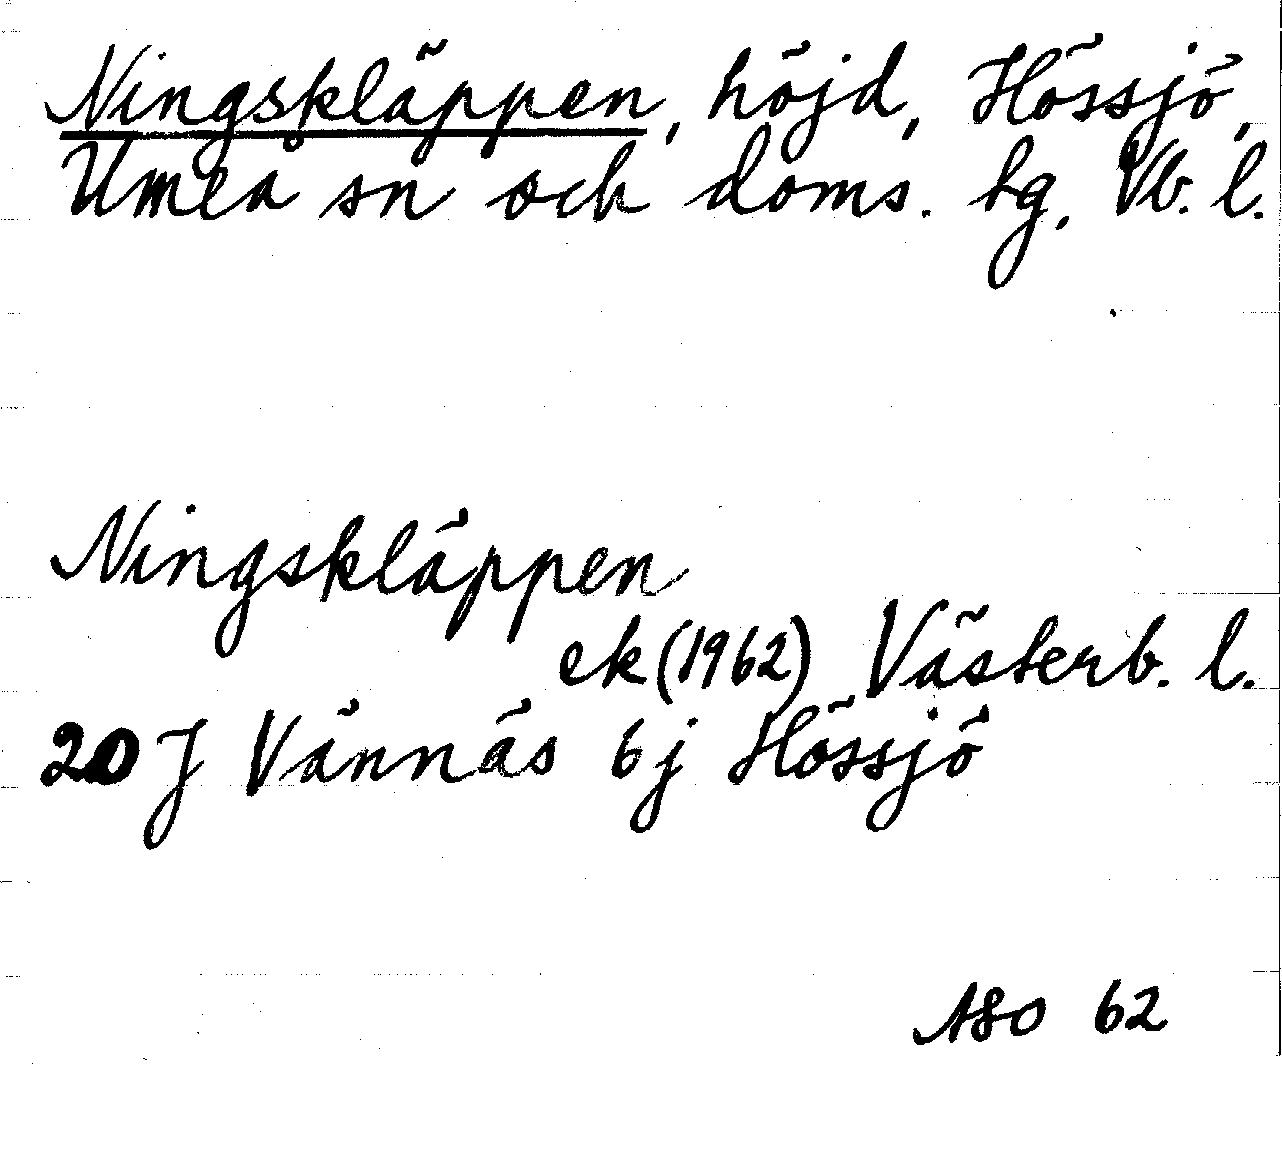 Ningskläppen, höjd, Hössjö,
Umeå sn och doms. hg, Vb. l.
Ningskläppen
ek (1962) Västerb. l.
20J Vännäs 6j Hössjö
ABO 62